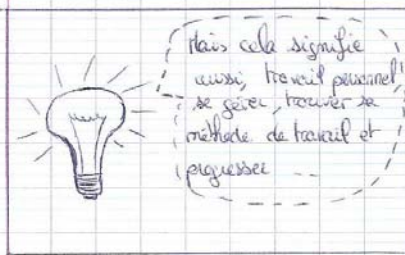 Mais cela signifie
aussi, travail personnel,
se gérer, trouver sa
méthode de travail et
progresser ...